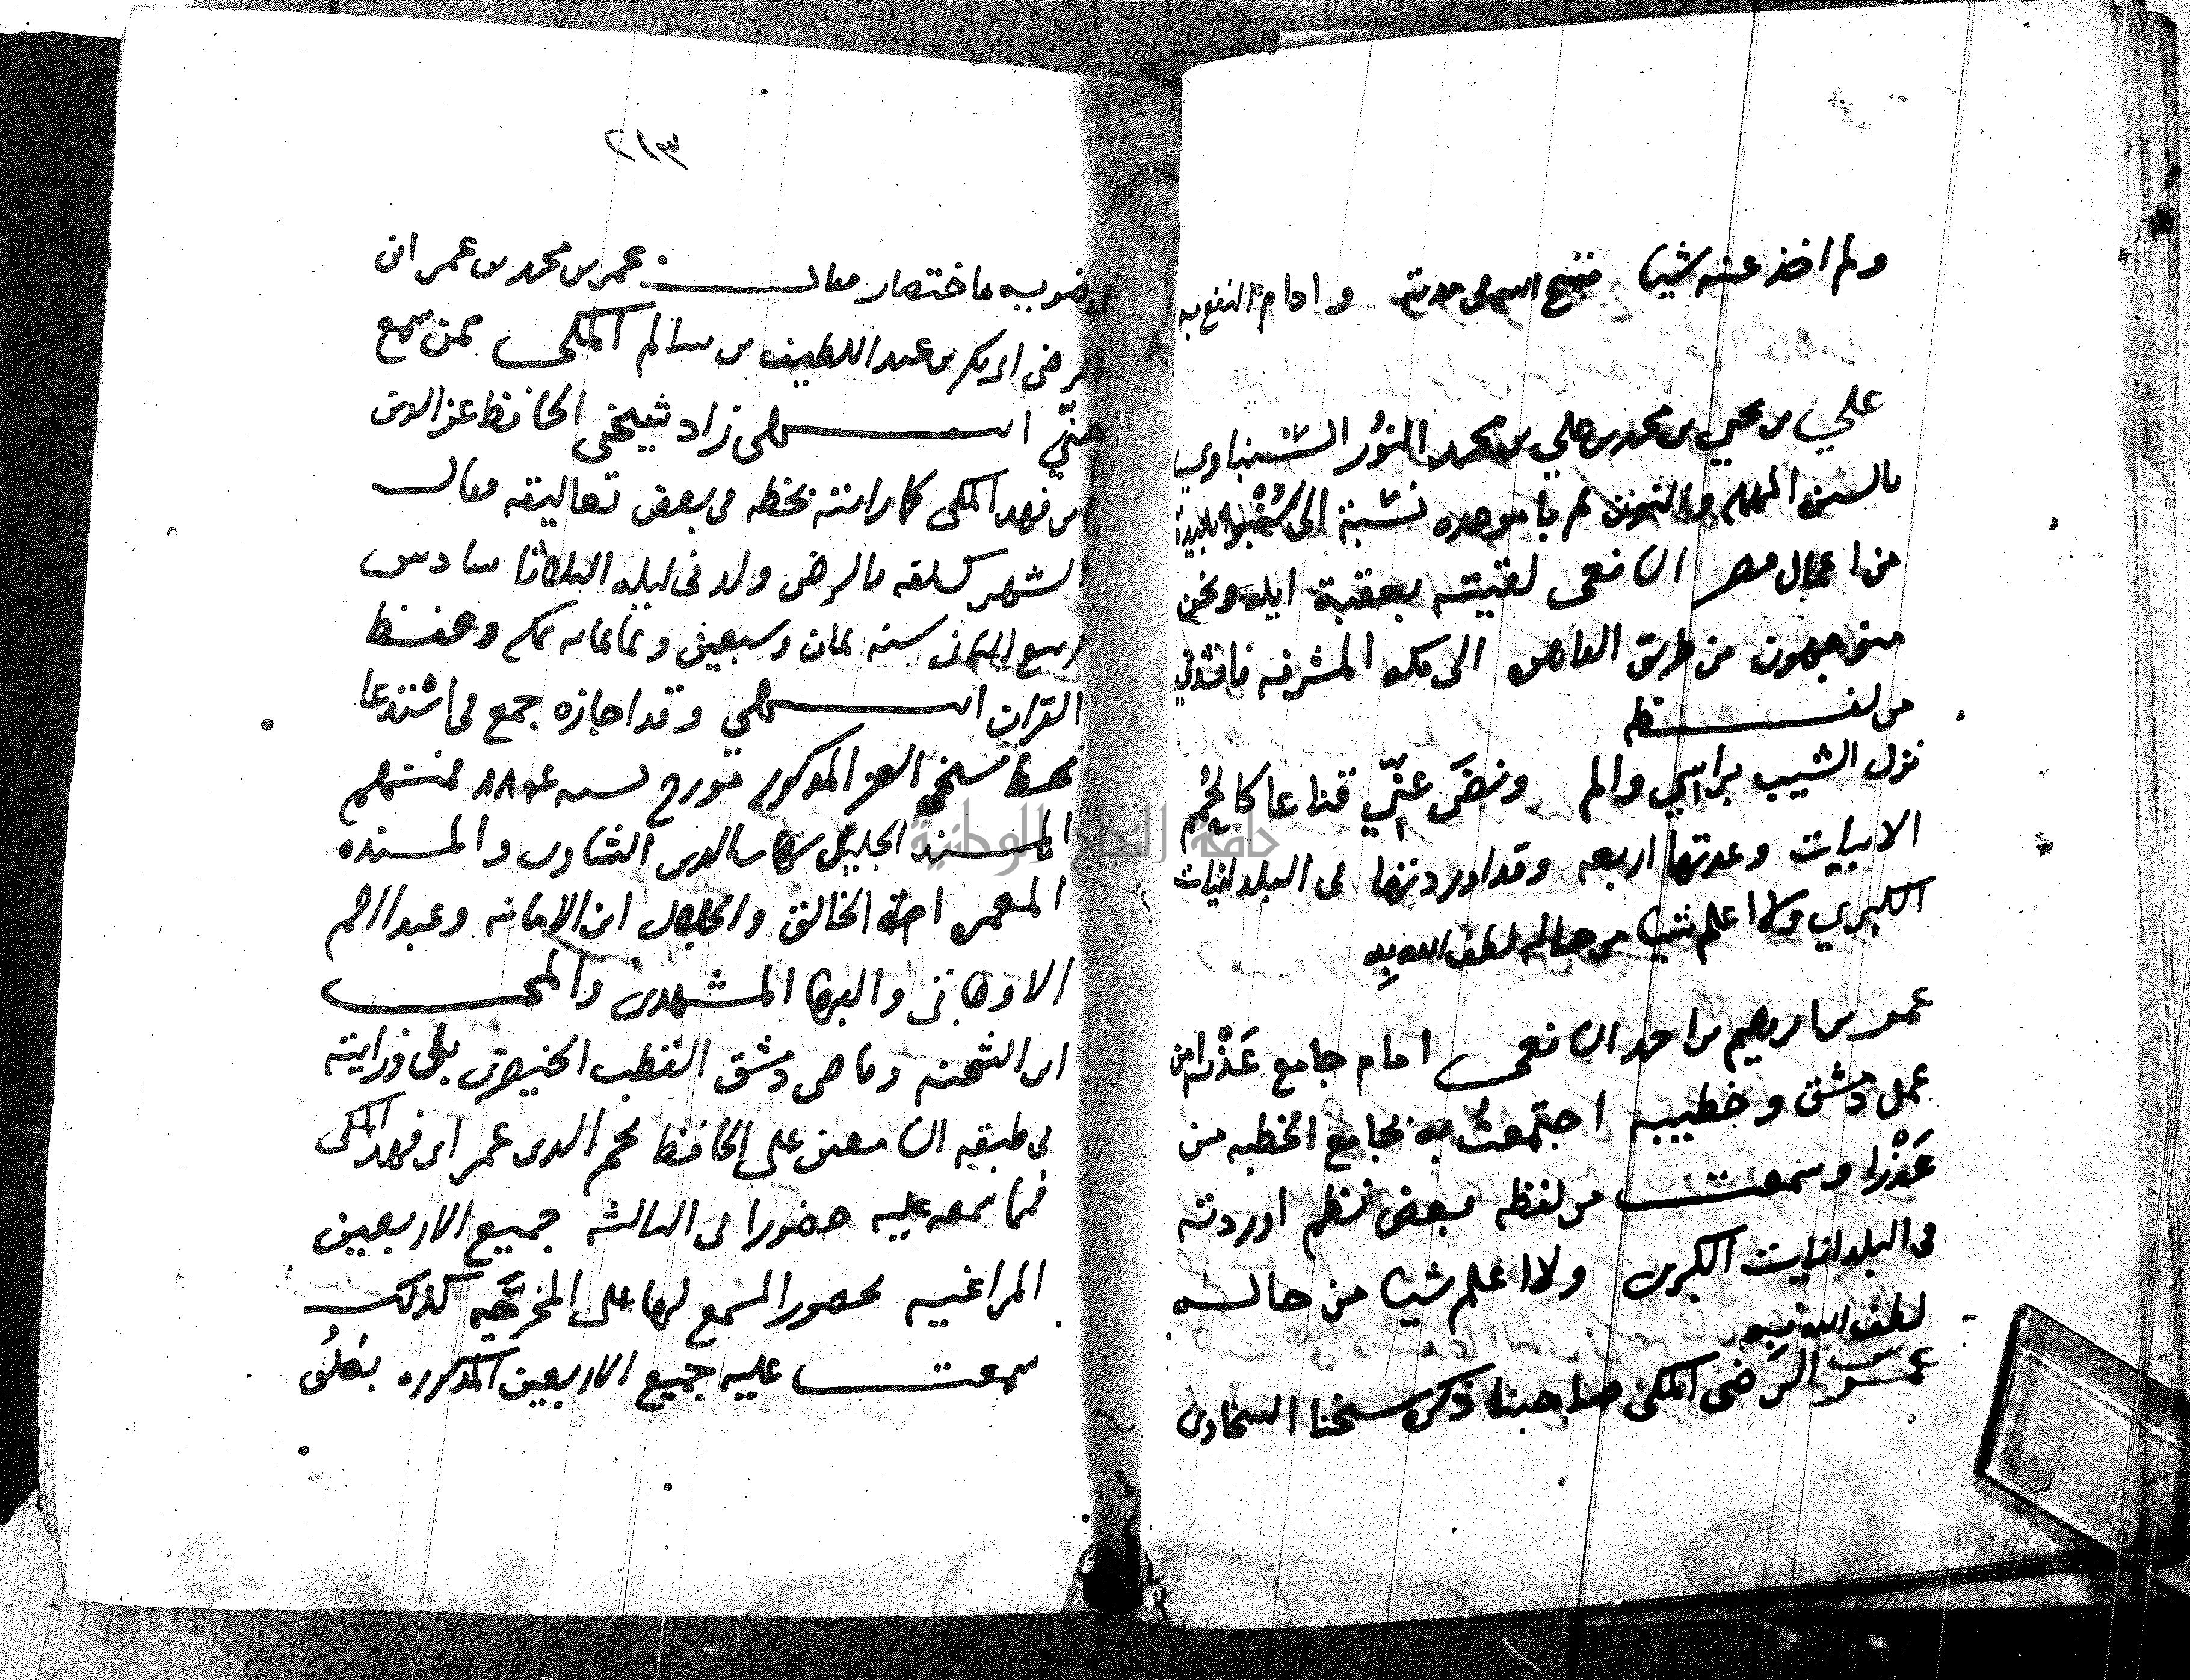 ولم اخذ عنه شيا فسح الله فى مدته وادام النفع به
علي بن محيي بن محمد بن علي بن محمد النور السنباوي
بالسين المهمله والنون ثم باموحده نسبة الى سنبو بليدة
من اعمال مصر الشافعى لقيته بعقبة ايله ونحن
متوجهون من طريق القاهره الى مكه المشرفه فانشدني
من لفظه
نزل الشيب براسي والم ونضى عنّي قناعا كالحُمم
الابيات وعدتها اربعه وقد اوردتها فى البلدانيات
الكبري ولا اعلم شيا من حاله لطف الله به
عمر بن ابرهيم بن احمد الشافعى امام جامع عَذْرا من
عمل دمشق وخطيبه اجتمعت به بجامع الخطبه من
عَذْرا وسمعت من لفظه بعض نظم اوردته
فى البلدانيات الكبرى ولا اعلم شيا من حاله
لطف الله به
عمر الرضى المكى صاحبنا ذكره شيخنا السخاوى
٢١٣
فى ضوءه باختصار فقال عمر بن محمد بن عمر ابن
الرضى ابى بكر بن عبد اللطيف بن سالم المكى ممن سمع
منّي انتهى زاد شيخى الحافظ عز الدين
ابن فهد المكى كما رايته بخطه فى بعض تعاليقه فقال
الشهير كسلفه بالرضى ولد فى ليله الثلاثا سادس
ربيع الثانى سنه ثمان وسبعين وثمانمائه بمكه وحفظ
القران انتهي وقد اجازه جمع فى استدعا
بخط شيخى العز المذكور مورخ بسنه ٨٨٤ فمنهم
المسند الجليل شهاب الدين الشاوى والمسنده
المعمره امة الخالق والجلال ابن الامانه وعبد الرحيم
الاوجاقى والبها المشهدى والمحب
ابن الشحنه وقاضى دمشق القطب الخيضرى بلى ورايته
فى طبقه السامعين على الحافظ نجم الدين عمر ابن فهد المكى
فيما سمعه عليه حضورا فى الثالثه جميع الاربعين
المراغيه بحضور المسمع لها على المخرجَه كذلك
سمعت عليه جميع الاربعين المذكوره